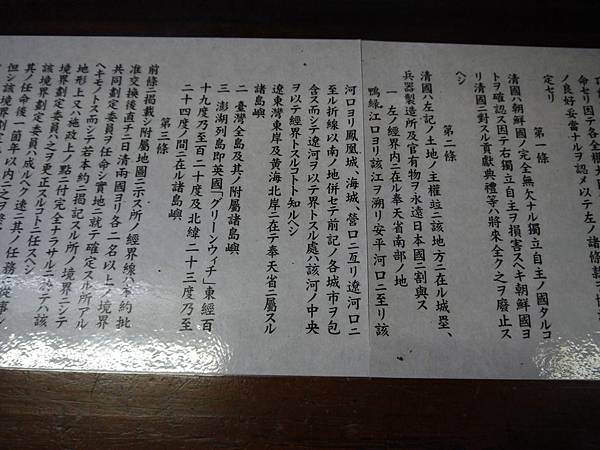 命セリ因テ各全權大臣
ノ良好妥當ナルヲ認メ以テ左ノ諸條
定セリ
第一條
清國ハ朝鮮國ノ完全無欠ナル獨立自主ノ國タルコ
トヲ確認ス因テ右獨立自主ヲ損害スヘキ朝鮮國ヨ
リ清國ニ對スル貢獻典禮等ハ將來全ク之ヲ廢止ス
ヘシ
第二條
清國ハ左記ノ土地ノ主權竝ニ該地方ニ在ル城壘、
兵器製造所及官有物ヲ永遠日本國ニ割與ス
一 左ノ經界内ニ在ル奉天省南部ノ地
鴨緑江口ヨリ該江ヲ溯リ安平河口ニ至リ該
河口ヨリ鳳凰城、海城、營口ニ亙リ遼河口ニ
至ル折線以南ノ地併セテ前記ノ各城市ヲ包
含ス而シテ遼河ヲ以テ界トスル處ハ該河ノ中央
ヲ以テ經界トスルコトト知ルヘシ
遼東灣東岸及黄海北岸ニ在テ奉天省ニ屬スル
諸島嶼
二 臺灣全島及其ノ附屬諸島嶼
三 澎湖列島即英國「グリーンウィチ」東經百
十九度乃至百二十度及北緯二十三度乃至
二十四度ノ間ニ在ル諸島嶼
第三條
前條ニ掲載シ附屬地圖ニ示ス所ノ經界線ハ本約批
准交換後直チニ日清兩國ヨリ各二名以上ノ境界
共同劃定委員ヲ任命シ實地ニ就テ確定スル所アル
ヘキモノトス而シテ若本約ニ掲記スル所ノ境界ニシテ
地形上又ハ施政上ノ點ニ付完全ナラサルニ於テハ該
境界劃定委員ハ之ヲ更正スルコトニ任スヘシ
該境界劃定委員ハ成ルヘク速ニ其ノ任務ニ從事シ
其ノ任命後一箇年以内ニ之ヲ終
但シ該境界劃定